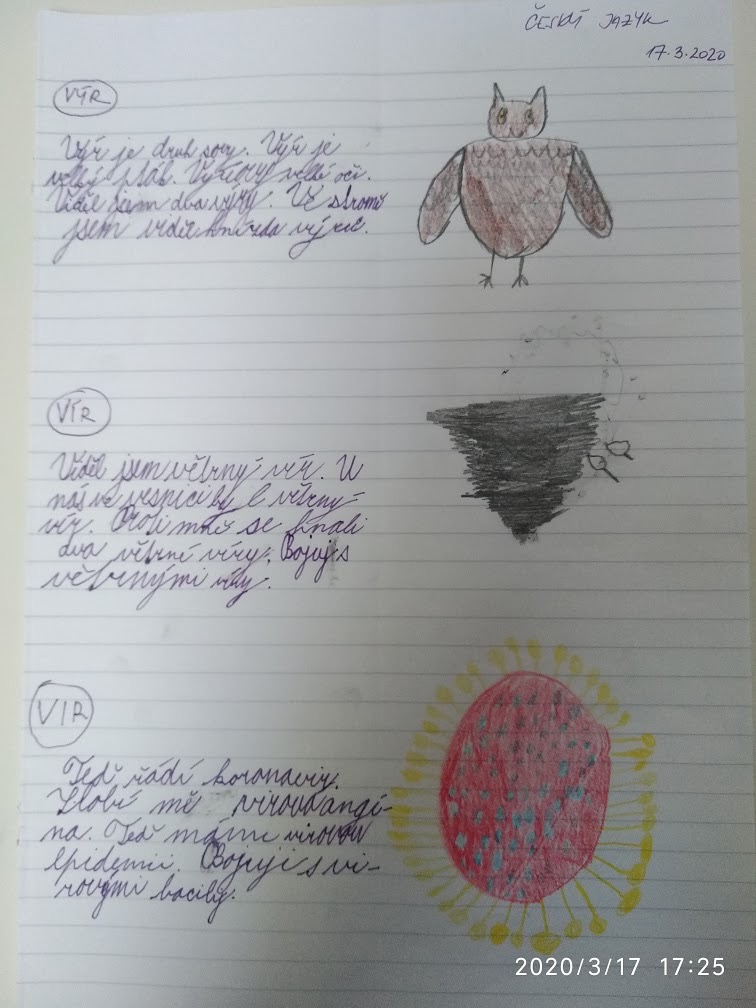 ČESKÝ JAZYK
17.3.2020
VÝR
Výr je druh sovy. Výr je
velký pták. Výr velké oči.
Viděl jsem dva výry. Ve stromě
jsem viděl hnízda
VÍR
Viděl jsem větrný vír. U
nás ve vesnici byl větrný
vír. Proti mně se hnali
dva větrné víry. Bojuj s
větrnými víry.
VIR
Teď řádí koronaviry.
Zlobí mě virová angí-
na. Teď máme virovou
epidemii. Bojuji s vi-
rovými bacily.
2020/3/17 17:25